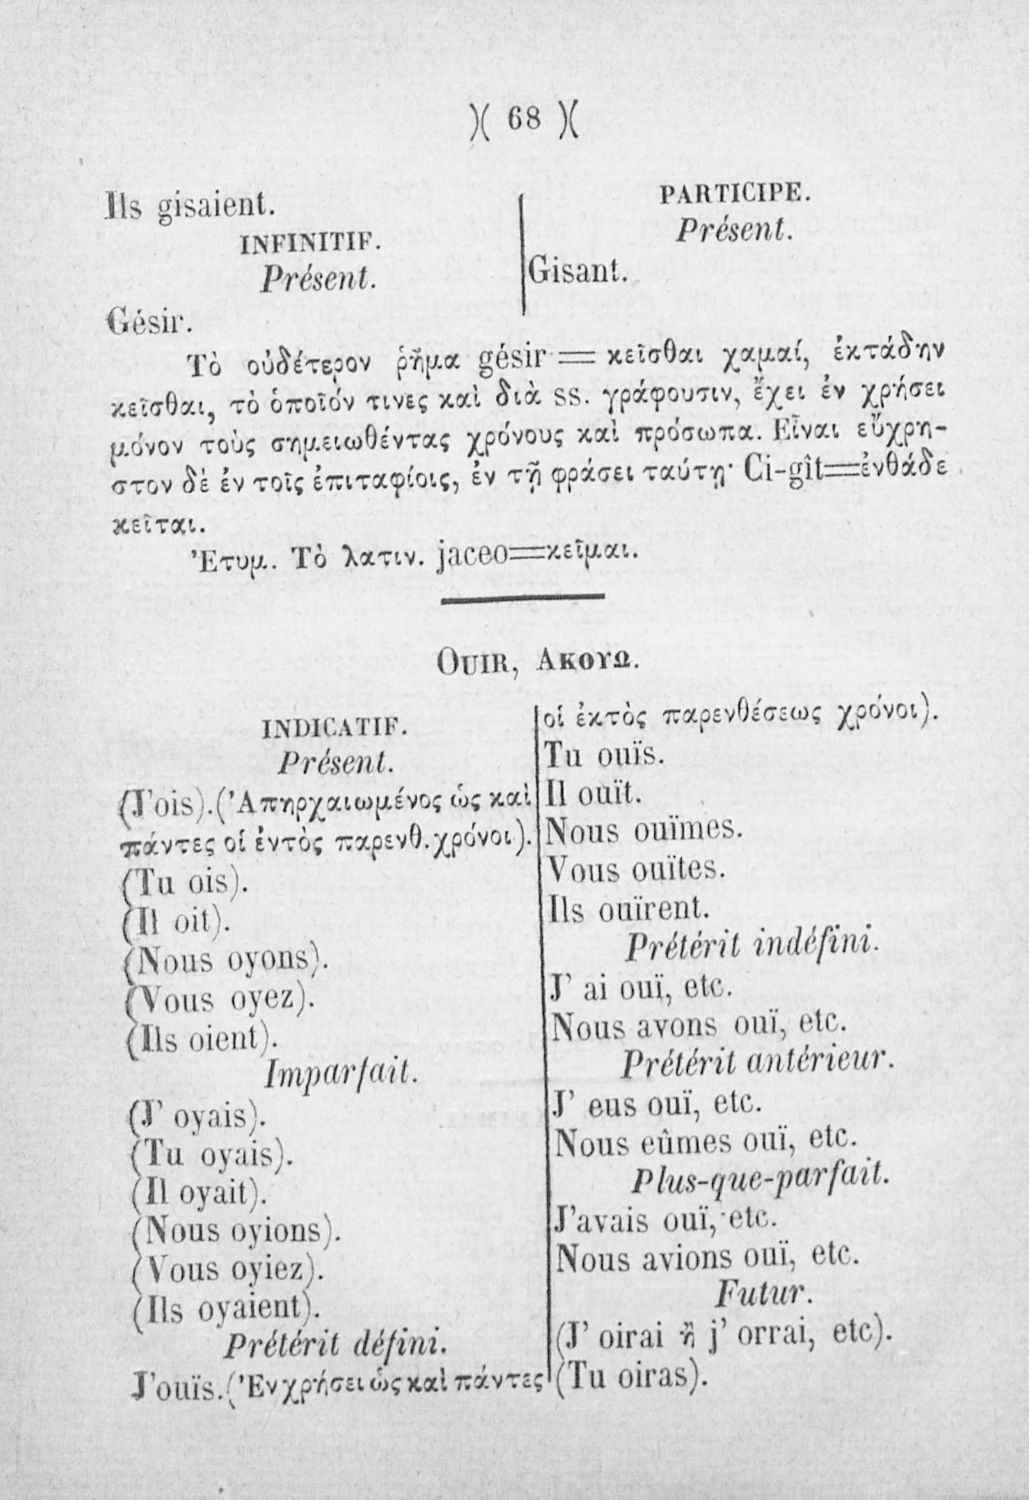 )( 68 )(
Ils gisaient.
INFINITIF.
Présent.
Gésir.
PARTICIPE.
Présent.
Gisant.
Τὸ οὐδέτερον ῥῆμα gésir = κεῖσθαι χαμαί, ἐκτάδην
κεῖσθαι, τὸ ὁποῖόν τινες καὶ διὰ ss. γράφουσιν, ἔχει ἐν χρήσει
μόνον τοὺς σημειωθέντας χρόνους καὶ πρόσωπα. Εἶναι εὔχρη-
στον δὲ ἐν τοῖς ἐπιταφίοις, ἐν τῇ φράσει ταύτῃ· Ci-gît=ἐνθάδε
κεῖται.
Ἐτυμ. Τὸ λατιν. jaceo=κεῖμαι.
OUIR, ΑΚΟΥΩ.
INDICATIF.
Présent.
(J'ois).(Ἀπηρχαιωμένος ὡς καὶ
πάντες οἱ ἐντὸς παρενθ. χρόνοι).
(Tu ois).
(Il oit).
(Nous oyons).
(Vous oyez).
(Ils oient).
Imparfait.
(J' oyais).
(Tu oyais).
(Il oyait).
(Nous oyions).
(Vous oyiez).
(Ils oyaient).
Prétérit défini.
J'ouïs.(Ἐν χρήσει ὡς καὶ πάντες
οἱ ἐκτὸς παρενθέσεως χρόνοι).
Tu ouïs.
Il ouït.
Nous ouïmes.
Vous ouïtes.
Ils ouïrent.
Prétérit indéfini.
J' ai ouï, etc.
Nous avons ouï, etc.
Prétérit antérieur.
J' eus ouï, etc.
Nous eûmes ouï, etc.
Plus-que-parfait.
J'avais ouï, etc.
Nous avions ouï, etc.
Futur.
(J' oirai ἢ j' orrai, etc).
(Tu oiras).